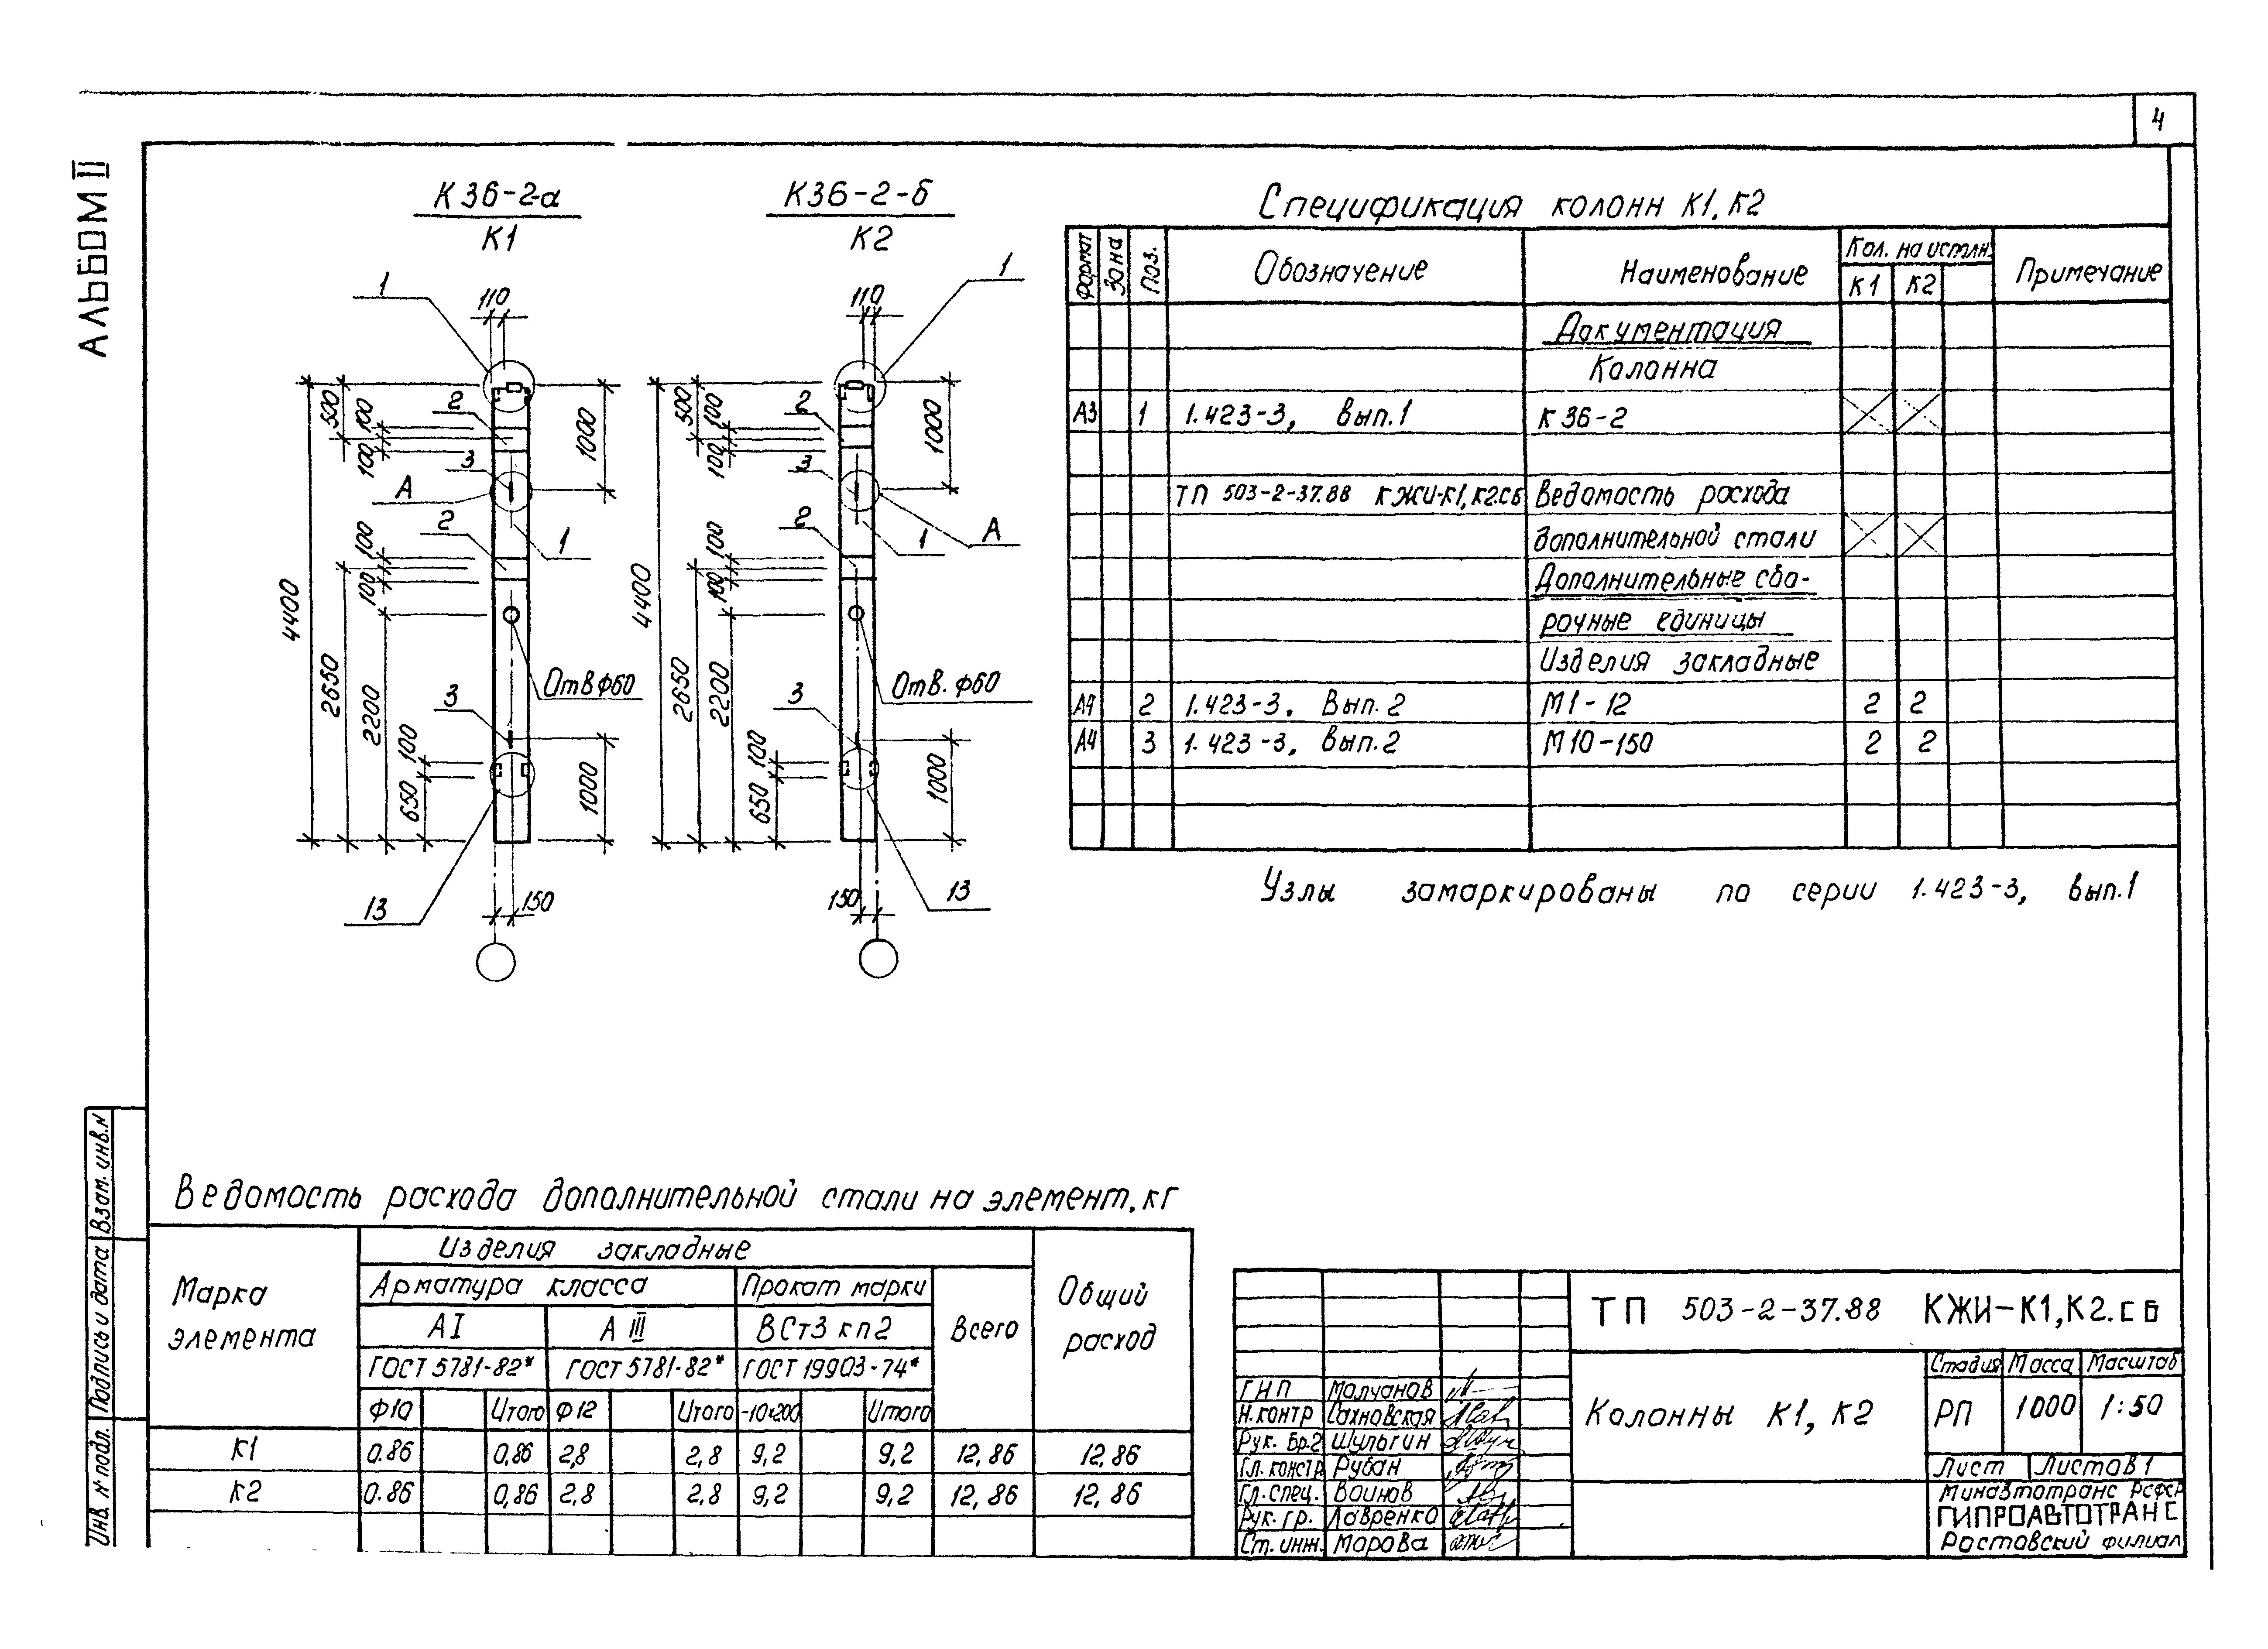 4
АЛЬБОМ II
К36-2-а
К1
К36-2-б
К2
1
110
500
100
100
2
3
А
1000
2
1
100
100
4400
2650
2200
Отв ф60
3
100
650
1000
13
150
1
110
500
100
100
2
3
А
1000
2
1
100
100
4400
2650
2200
Отв. ф60
3
100
650
1000
13
150
Спецификация колонн К1, К2
Формат Зона Поз. Обозначение Наименование Кол. на исполн. Примечание
К1 К2
Документация
Колонна
А3 1 1.423-3, Вып.1 К 36-2
ТП 503-2-37.88 КЖИ-К1,К2.СБ Ведомость расхода
дополнительной стали
Дополнительные сбо-
рочные единицы
Изделия закладные
А4 2 1.423-3. Вып.2 М1-12 2 2
А4 3 1.423-3, Вып.2 М10-150 2 2
Узлы замаркированы по серии 1.423-3, вып.1
Ведомость расхода дополнительной стали на элемент, кг
Марка элемента
Изделия закладные
Общий расход
Арматура класса Прокат марки Всего
А I А III ВСт3 кп2
ГОСТ 5781-82* ГОСТ 5781-82* ГОСТ 19903-74*
Ф10 Итого Ф12 Итого -10х200 Итого
К1 0.86 0,86 2,8 2,8 9,2 9,2 12,86 12,86
К2 0.86 0,86 2,8 2,8 9,2 9,2 12,86 12,86
ТП 503-2-37.88 КЖИ-К1,К2.СБ
Колонны К1, К2
Стадия Масса Масштаб
РП 1000 1:50
Лист Листов 1
Минавтотранс РСФСР
ГИПРОАВТОТРАНС
Ростовский филиал
ГНП Молчанов
Н.контр Сахновская
Рук. Бр.2 Шульгин
Гл. констр. Рубан
Гл. спец. Воинов
Рук. гр. Лавренко
Ст. инж. Марова
Инв. № подл. Подпись и дата Взам. инв. №